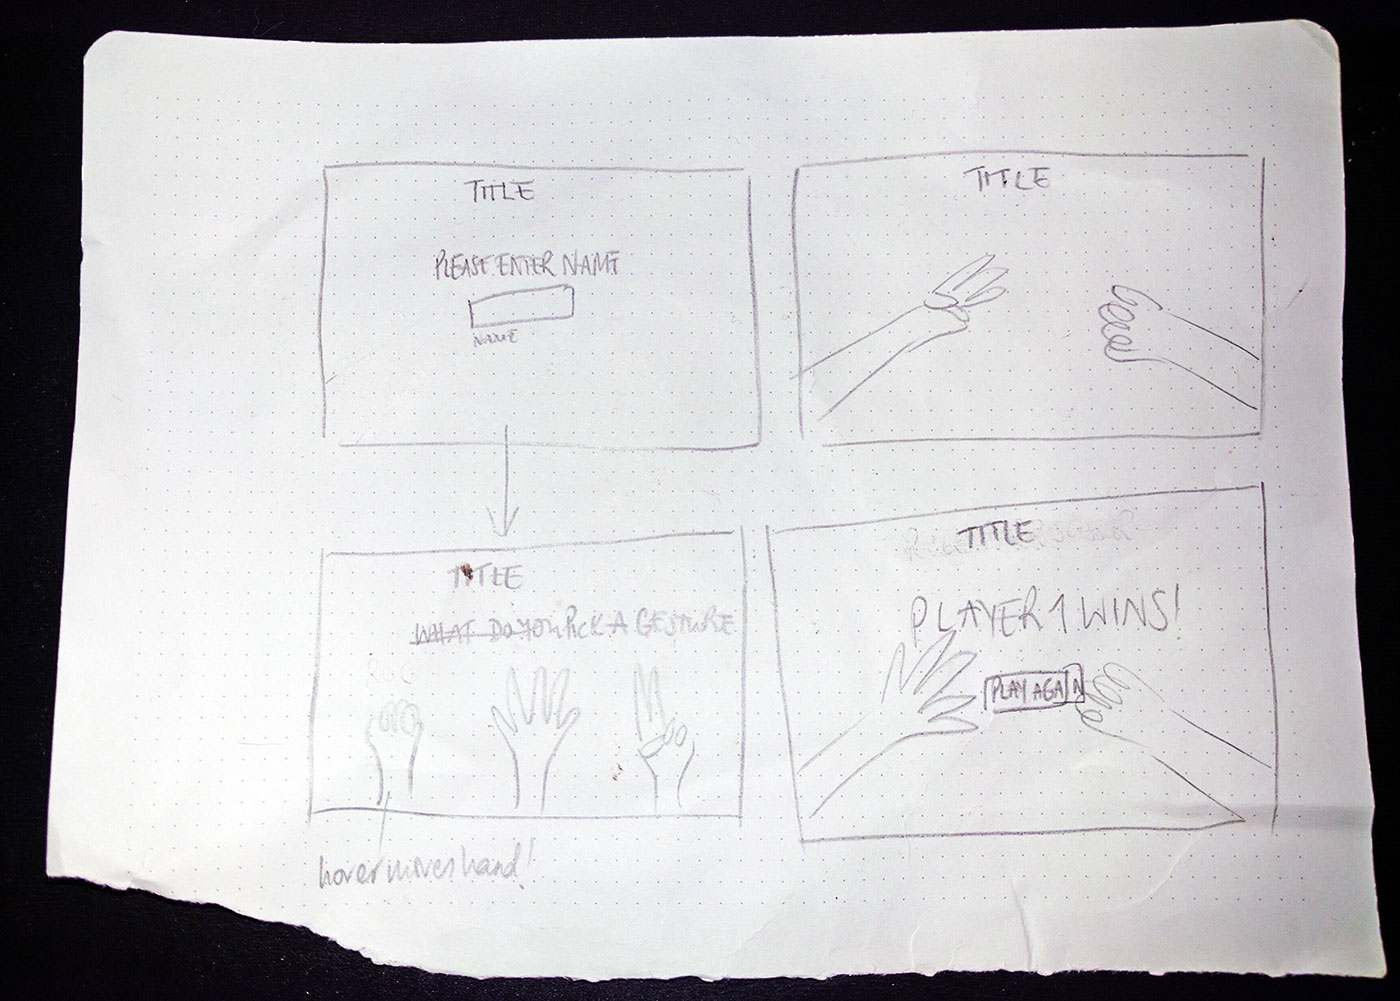 TITLE
PLEASE ENTER NAME
NAME
TITLE
TITLE
WHAT DO YOU PICK A GESTURE
hover moves hand!
TITLE
PLAYER 1 WINS!
PLAY AGAIN